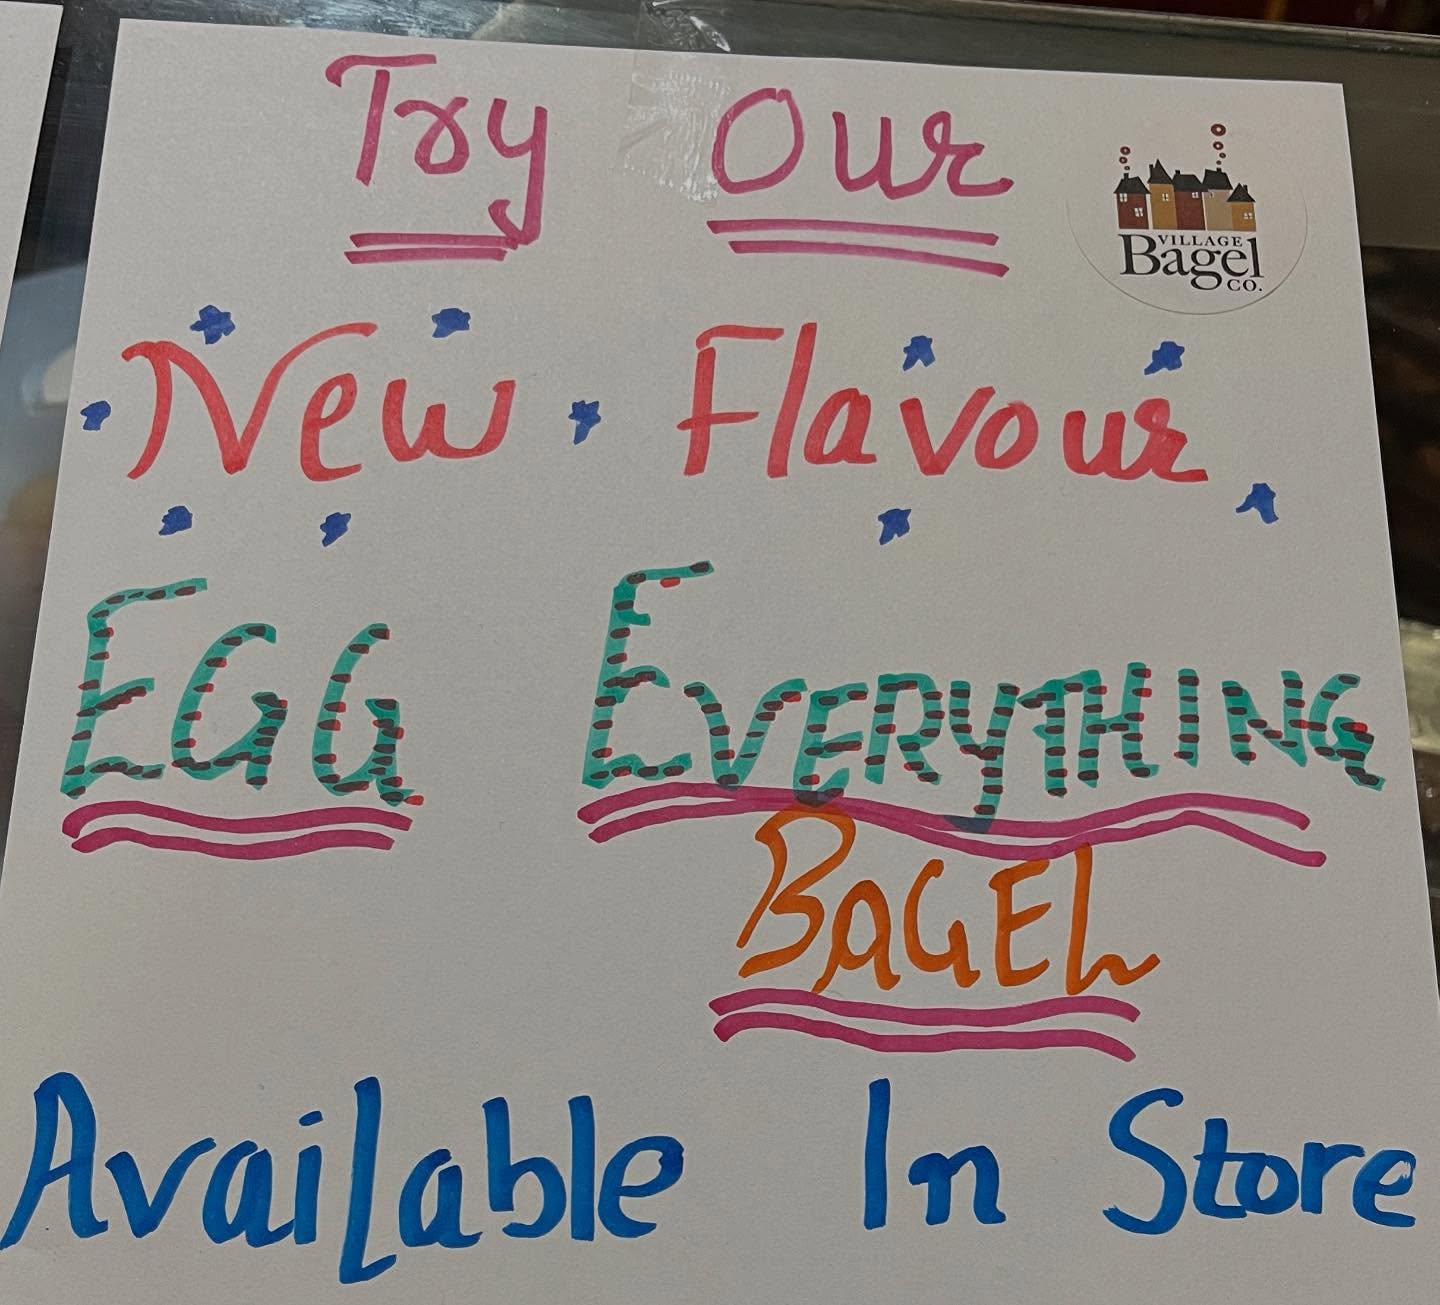 Try Our
VILLAGE
Bagel
CO.
New Flavour
EGG EVERYTHING
BAGEL
Available In Store